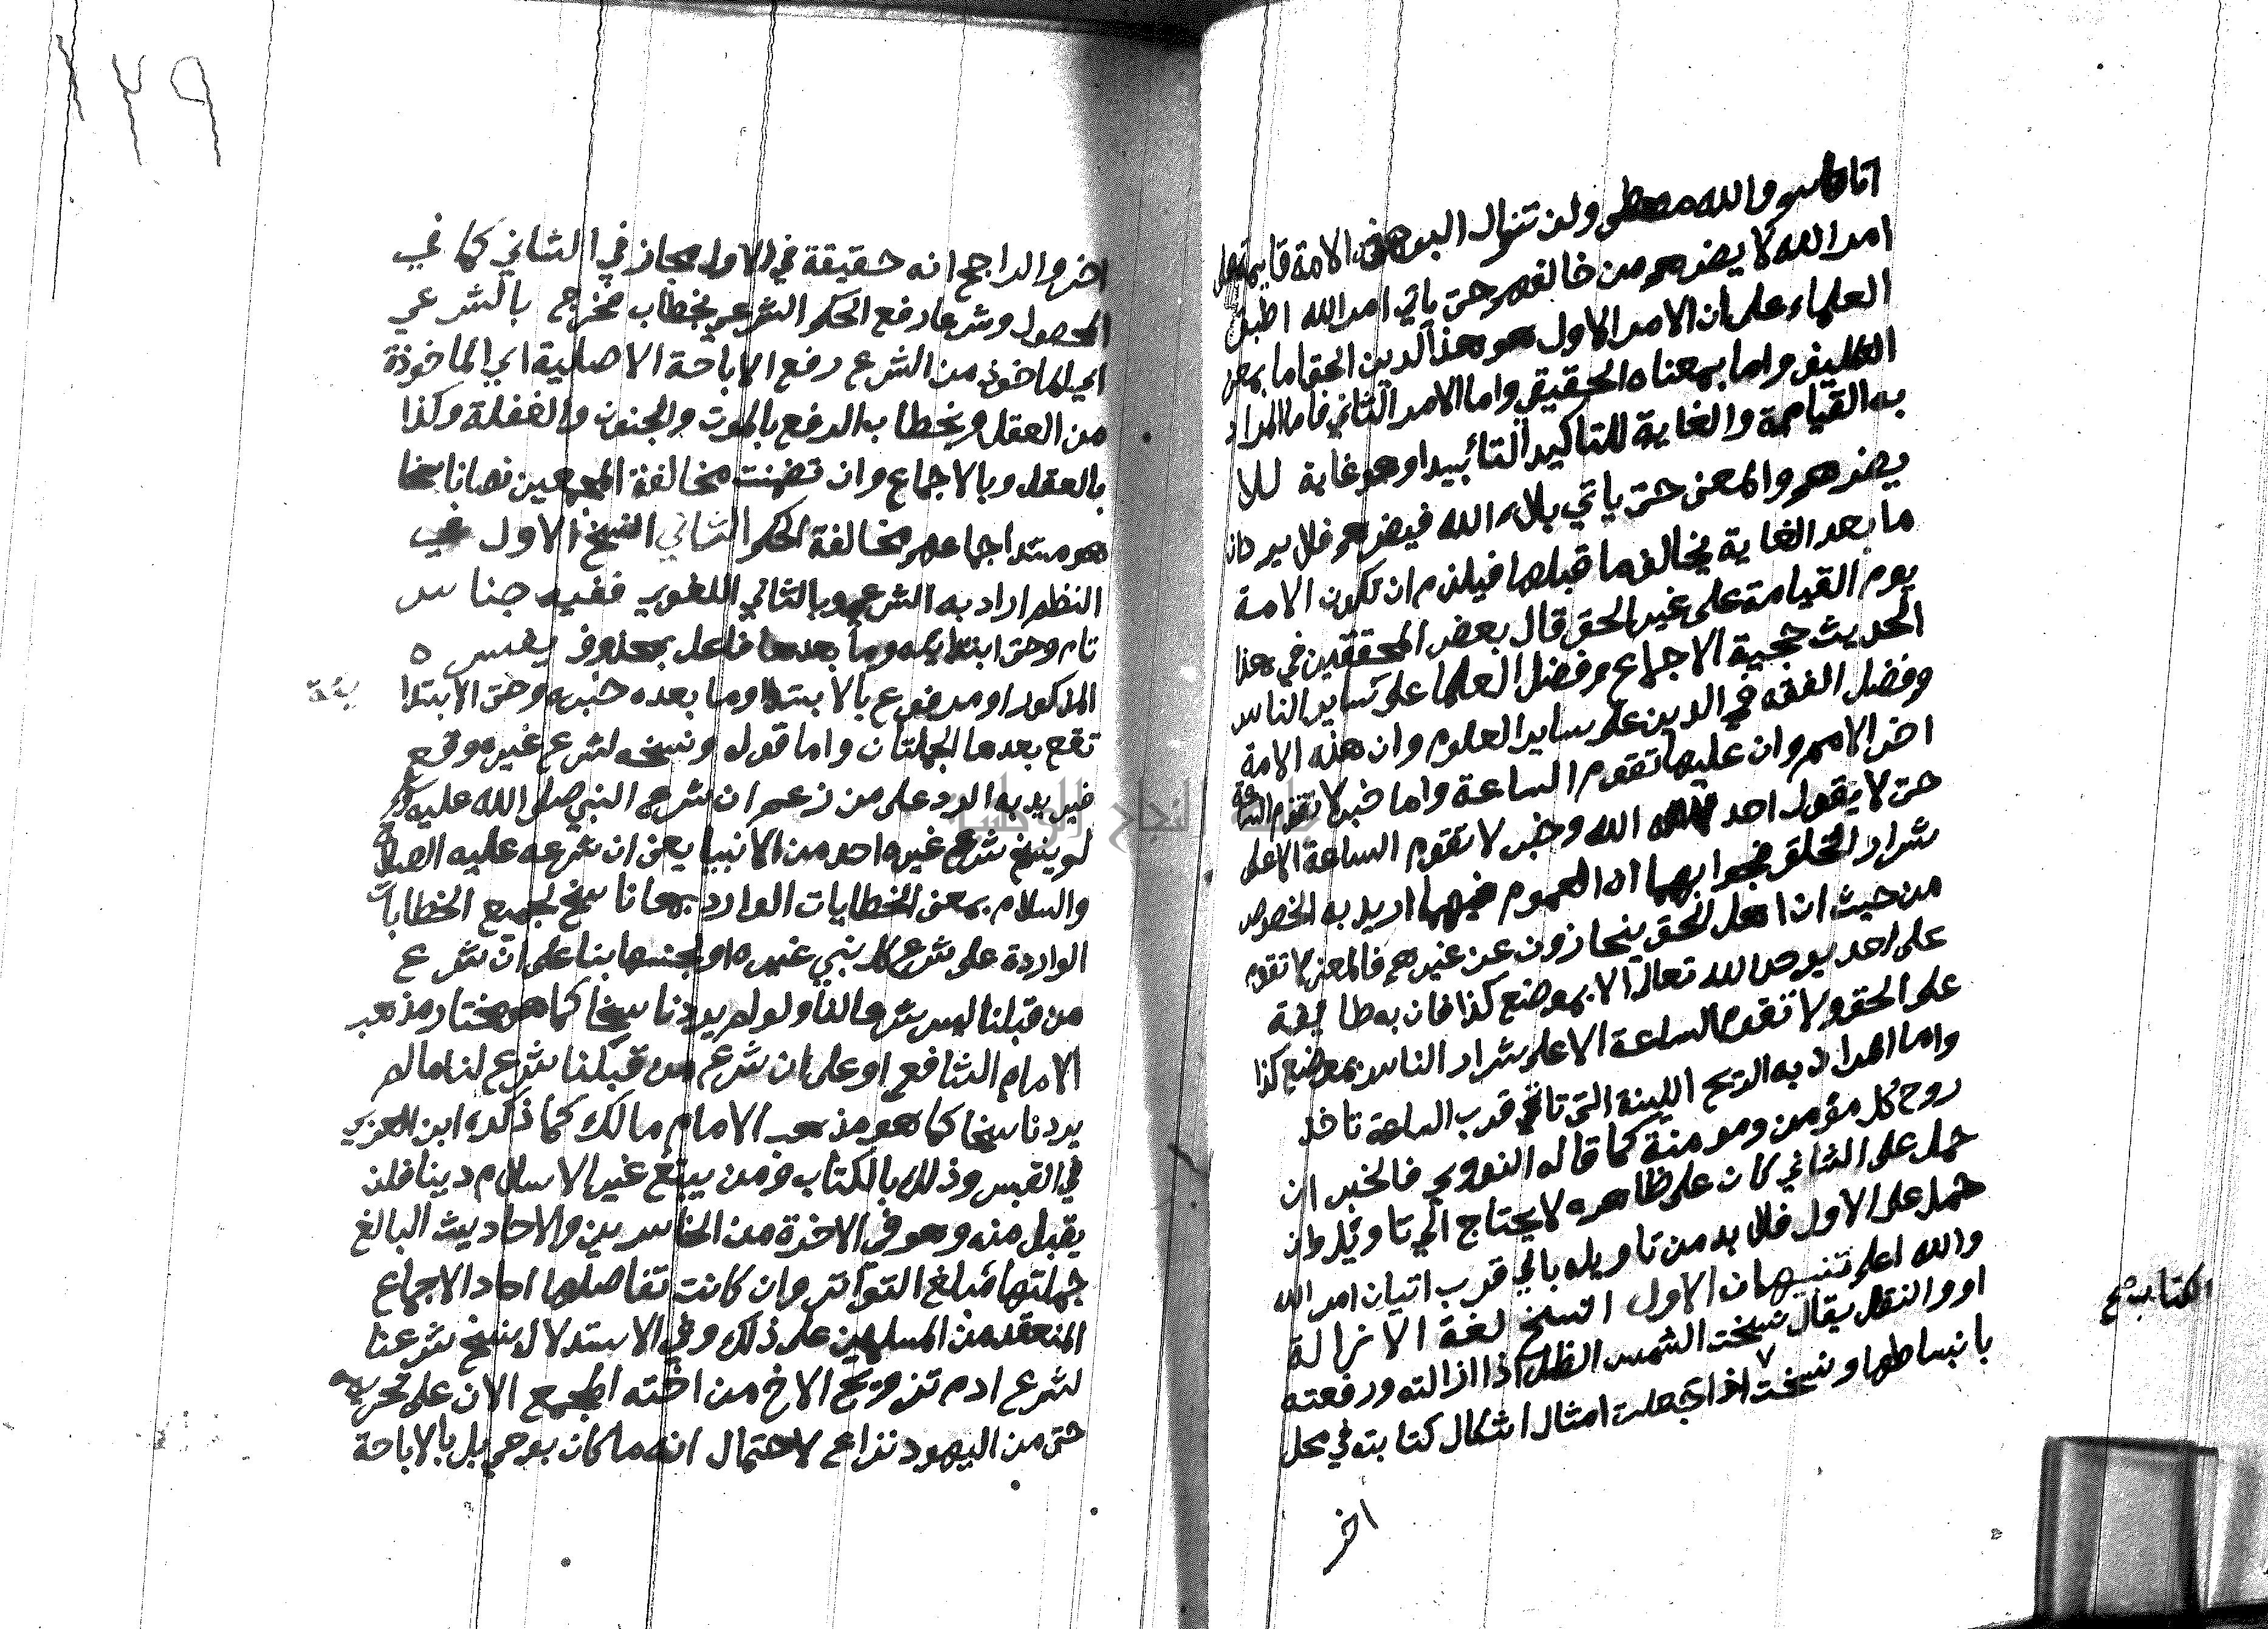 انا قاسم والله معطي ولن تزال هذه الامة قايمة على
امر الله لا يضرهم من خالفهم حتى ياتي امر الله اطبق
العلماء على ان الامر الاول هو هذا الدين الحق اما بمعنى
التكليف واما بمعناه الحقيقي واما الامر الثاني فاما المراد
به القيامة والغاية للتاكيد التأبيد او هو غاية للا
يضرهم والمعنى حتى ياتي بلاء الله فيضرهم فلا يرد ان
ما بعد الغاية يخالف ما قبلها فيلزم ان تكون الامة
يوم القيامة على غير الحق قال بعض المحققين في هذا
الحديث حجية الاجماع وفضل العلما على ساير الناس
وفضل الفقه في الدين على ساير العلوم وان هذه الامة
اخر الامم وان عليها تقوم الساعة واما خبر لا تقوم الساعة
حتى لا يقول احد الله الله وخبر لا تقوم الساعة الا على
شرار الخلق فجوابهما ان العموم فيهما اريد به الخصوص
من حيث ان اهل الحق ينحازون عن غيرهم فالمعنى لا تقوم
على احد يوحد الله تعالى الا بموضع كذا فان به طايفة
على الحق ولا تقوم الساعة الا على شرار الناس بموضع كذا
واما المراد به الريح اللينة التي تاتي قرب الساعة تاخذ
روح كل مؤمن ومومنة كما قاله النووي فالخبر ان
حمل على الثاني كان على ظاهره لا يحتاج الي تاويل وان
حمل على الاول فلا بد من تاويله بالي قرب اتيان امر الله
والله اعلم تنبيهان الاول النسخ لغة الازالة
او والنقل يقال نسخت الشمس الظل اذا ازالته ورفعته
بانبساطها ونسخت اذا جعلت امثال اشكال كتابته في محل
الكتاب صح
اخر
١٢٩
اخر والراجح انه حقيقة في الاول مجاز في الثاني كما في
المحصول وشرعا رفع الحكم الشرعي بخطاب مخرج بالشرعي
اي الماخوذ من الشرع رفع الاباحة الاصلية اي الماخوذة
من العقل وبخطاب الرفع بالموت والجنون والغفلة وكذا
بالعقل وبالاجماع وان تضمنت مخالفة المجمعين نصا ناسخا
هو مستند اجماعهم مخالفة الحكم الثاني النسخ الاول في
النظم اراد به الشرعي وبالثاني اللغوي ففيه جناس
تام وحتى ابتدايه وما بعدها فاعل بمحذوف يفسره
المذكور او مرفوع بالابتدا وما بعده خبره وحتى الابتدا
ئية
تقع بعدها الجملتان واما قوله ونسخه لشرع غيره وقع
فيريد به الرد على من زعم ان شرع النبي صلى الله عليه وسلم
لم ينسخ شرع غيره احد من الانبيا يعني ان شرعه عليه الصلاة
والسلام بمعنى الخطابات الوارد بها ناسخ لجميع الخطابات
الواردة على شرع كل نبي غيره او لجنسها بنا على ان شرع
من قبلنا ليس شرعا لنا ولو لم يرد ناسخا كما هو مختار مذهب
الامام الشافعي او على ان شرع من قبلنا شرع لنا ما لم
يرد ناسخا كما هو مذهب الامام مالك كما ذكره ابن العربي
في القبس وذلك بالكتاب ومن يبتغ غير الاسلام دينا فلن
يقبل منه وهو في الاخرة من الخاسرين والاحاديث البالغ
جملتها مبلغ التواتر وان كانت تفاصلها احاد الاجماع
المنعقد من المسلمين على ذلك وفي الاستدلال بنسخ شرعنا
لشرع ادم تزويج الاخ من اخته المجمع الان على تحريمه
حتى من اليهود نزاع لاحتمال انه ما كان بوحي بل بالاباحة